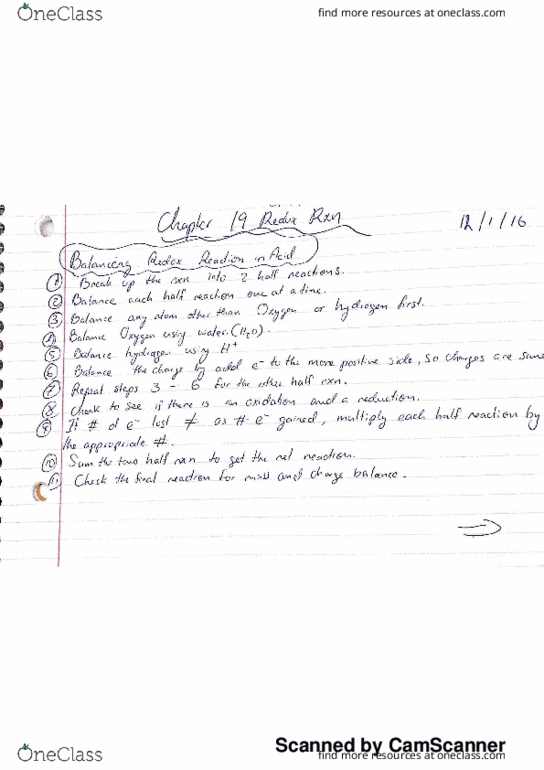 OneClass
find more resources at oneclass.com
Chapter 19 Redox Rxn
12/1/16
Balancing Redox Reaction in Acid
① Break up the rxn into 2 half reactions.
② Balance each half reaction one at a time.
③ Balance any atom other than Oxygen or hydrogen first.
④ Balance Oxygen using water. (H₂O).
⑤ Balance hydrogen using H⁺
⑥ Balance the charge by add e⁻ to the more positive side, so charges are same
⑦ Repeat steps 3 - 6 for the other half rxn.
⑧ Check to see if there is an oxidation and a reduction.
⑨ If # of e⁻ lost ≠ as # e⁻ gained, multiply each half reaction by
the appropriate #.
⑩ Sum the two half rxn to get the net reaction.
⑪ Check the final reaction for mass and charge balance.
Scanned by CamScanner
OneClass
find more resources at oneclass.com